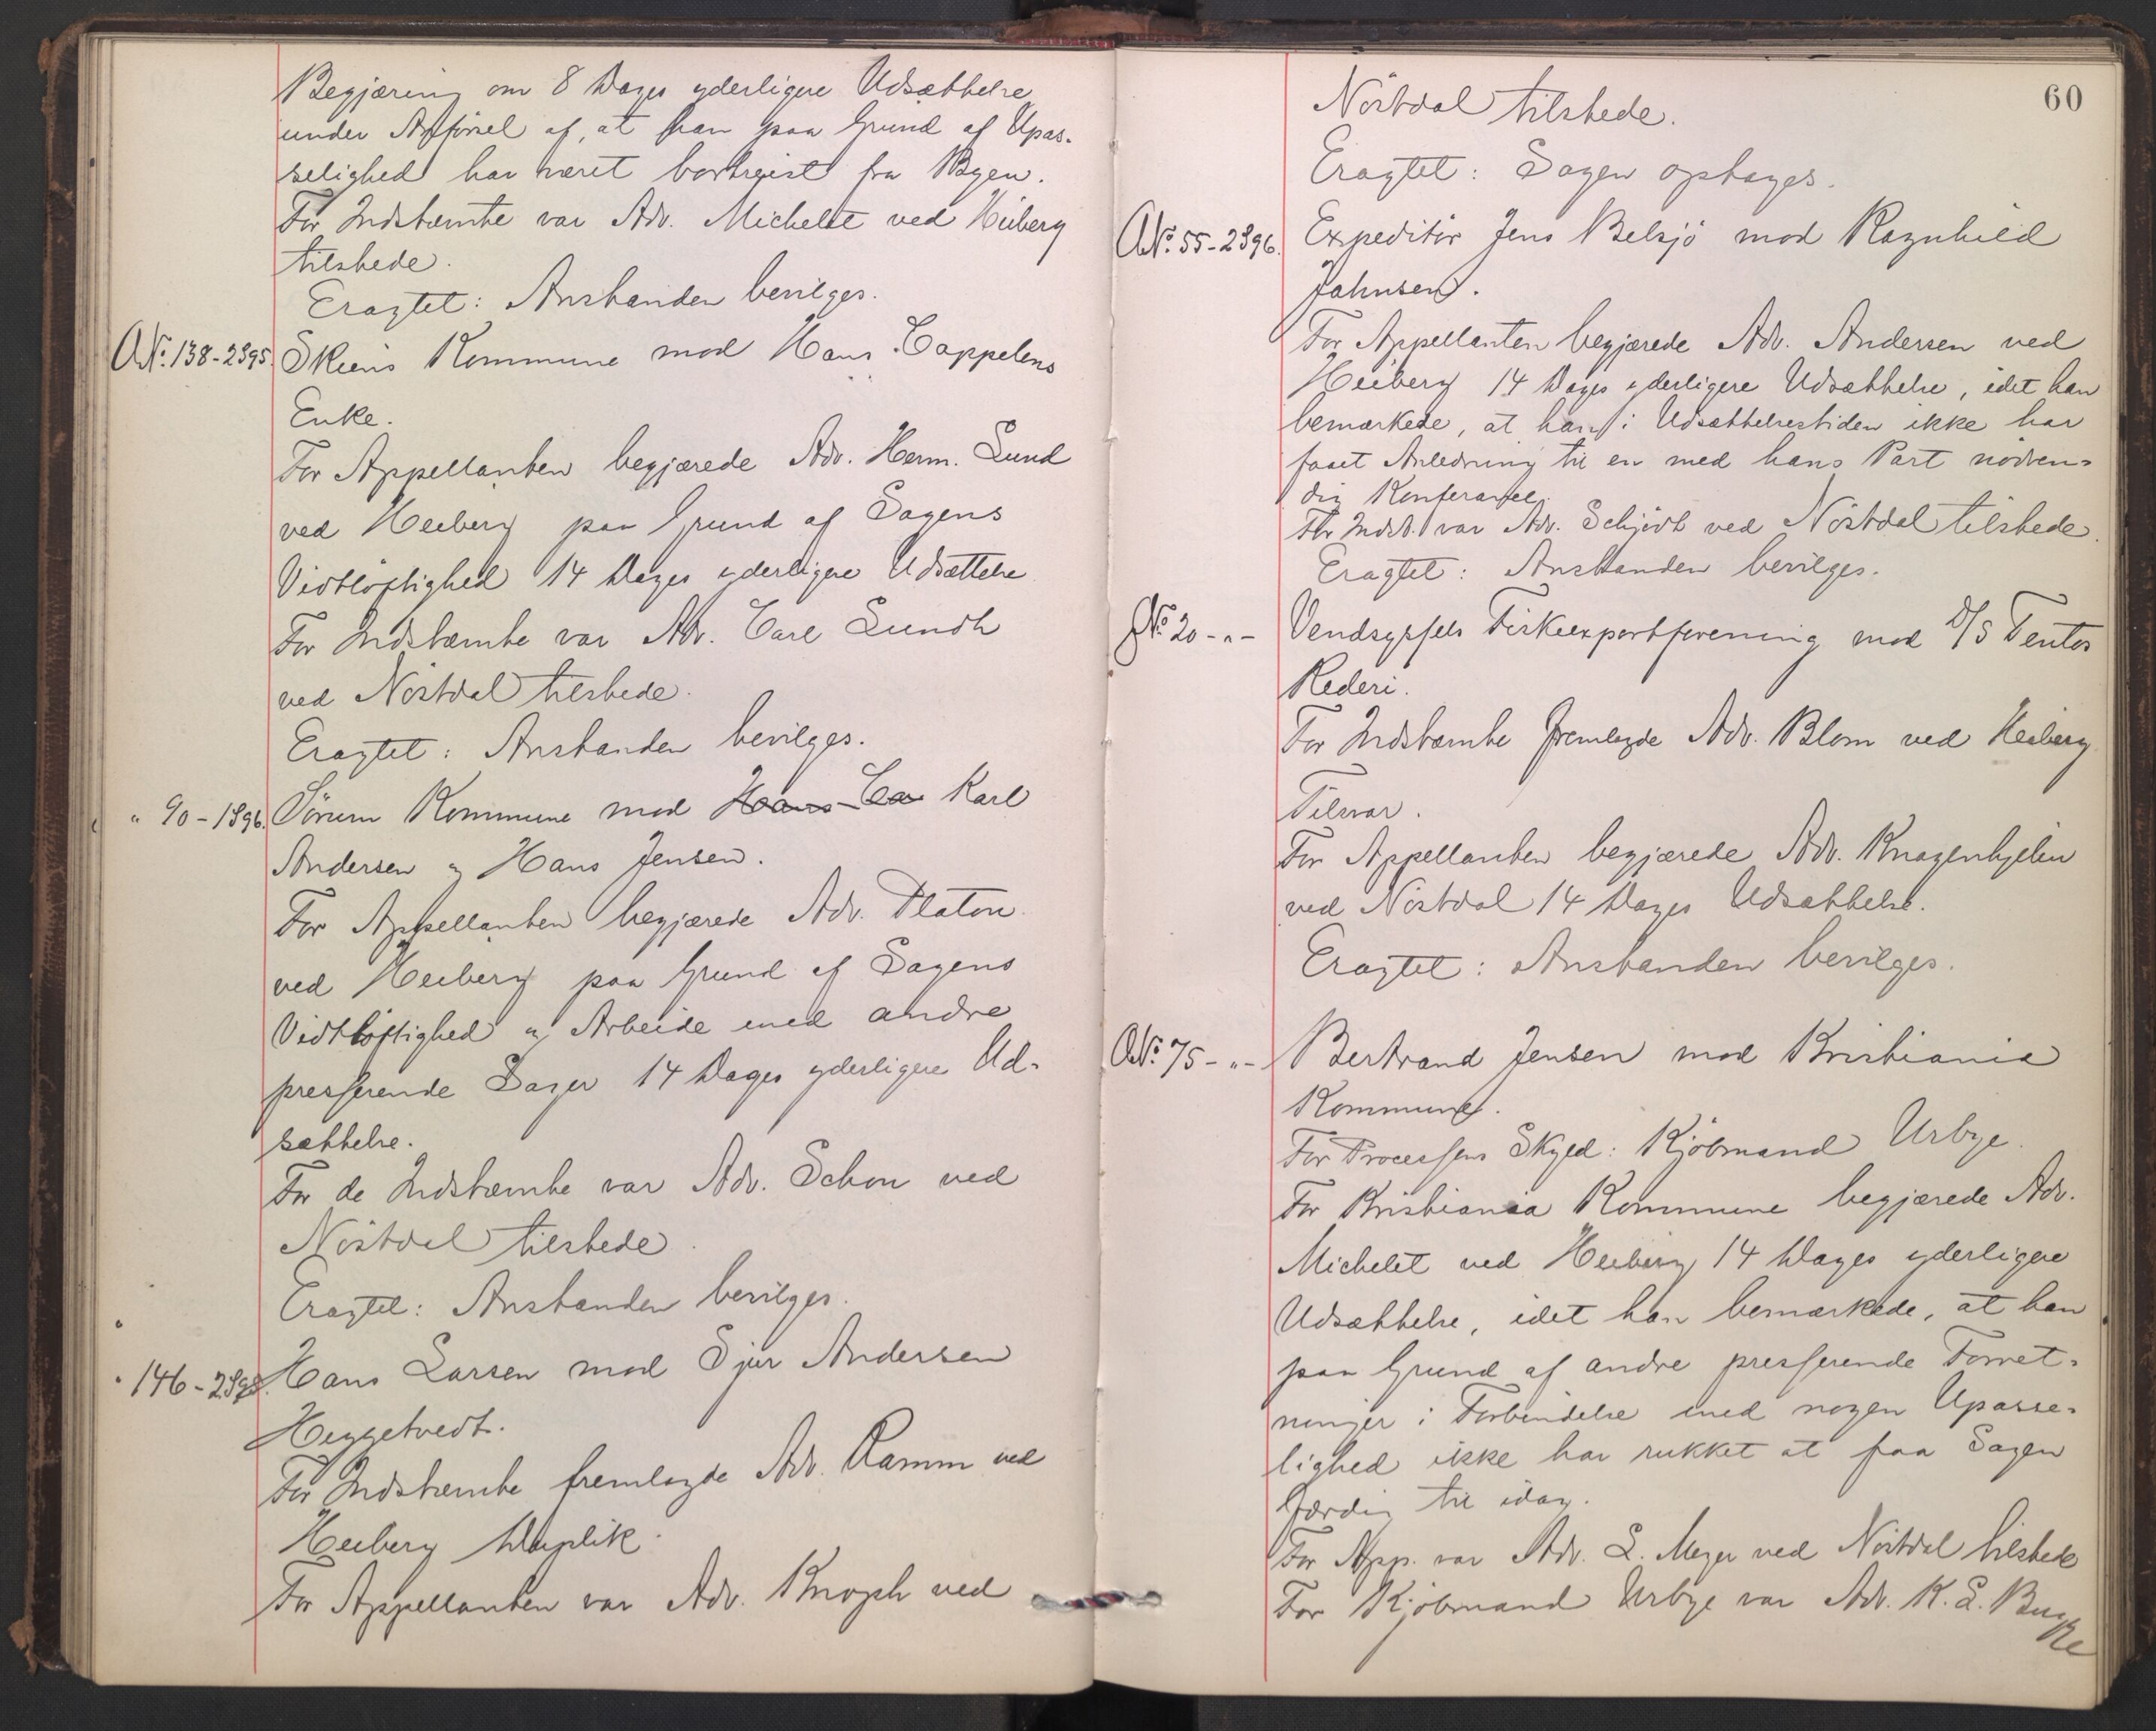 Begjæring om 8 Dages yderligere Udsættelse
under Anførsel af, at han paa Grund af Upas-
selighed har været bortreist fra Byen.
For Indstæmte var Adv. Michelet ved Heiberg
tilstede.
Eragtet: Anstanden bevilges.
ANo. 138-2 895. Skiens Kommune mod Hans Cappelens
Enke.
For Appellanten begjærede Adv. Herm. Lund
ved Heiberg paa Grund af Sagens
Vidtløftighed 14 Dages yderligere Udsættelse
For Indstæmte var Adv. Carl Lundh
ved Nöstdal tilstede.
Eragtet: Anstanden bevilges.
" 90-1 896. Sørum Kommune mod Hans Ca Karl
Andersen og Hans Jensen.
For Appellanten begjærede Adv. Platou
ved Heiberg paa Grund af Sagens
Vidtløftighed og Arbeide med andre
presserende Sager 14 Dages yderligere Ud-
sættelse.
For de Indstæmte var Adv. Schou ved
Nöstdal tilstede.
Eragtet: Anstanden bevilges.
" 146-2 895. Hans Larsen mod Sjur Andersen
Heggetvedt.
For Indstæmte fremlagde Adv. Ramm ved
Heiberg Duplik.
For Appellanten var Adv. Knoph ved
60
Nöstdal tilstede.
Eragtet: Sagen optages.
ANo. 55-2 896. Expeditör Jens Belsjö mod Ragnhild
Johnsen.
For Appellanten begjærede Adv. Andersen ved
Heiberg 14 Dages yderligere Udsættelse, idet han
bemærkede, at han i Udsættelsestiden ikke har
faaet Anledning til en med hans Part nödven-
dig Konferance.
For Indst. var Adv. Schjödt ved Nöstdal tilstede.
Eragtet: Anstanden bevilges.
No. 20-"- Vendsyssels Fiskeexportforening mod D/S Tentos
Rederi.
For Indstæmte fremlagde Adv. Blom ved Heiberg
Tilsvar.
For Appellanten begjærede Adv. Knagenhjelm
ved Nöstdal 14 Dages Udsættelse.
Eragtet: Anstanden bevilges.
ANo. 75-"- Bertrand Jensen mod Kristiania
Kommune.
For Processens Skyld: Kjöbmand Urbye.
For Kristiania Kommune begjærede Adv.
Michelet ved Heiberg 14 Dages yderligere
Udsættelse, idet han bemærkede, at han
paa Grund af andre presserende Forret-
ninger i Forbindelse med nogen Upasse-
lighed ikke har rukket at faa Sagen
færdig til idag.
For App. var Adv. L. Meyer ved Nöstdal tilstede
For Kjöbmand Urbye var Adv. K. L. Bugge